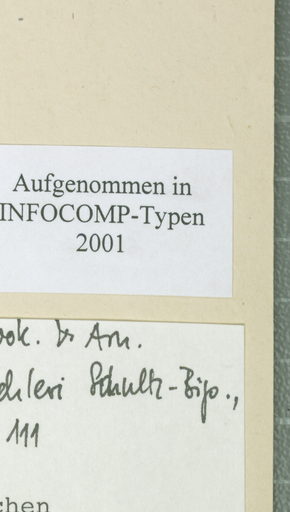 Aufgenommen in
INFOCOMP-Typen
2001
ook. & Arn.
chleri Schultz-Bip.,
111
chen